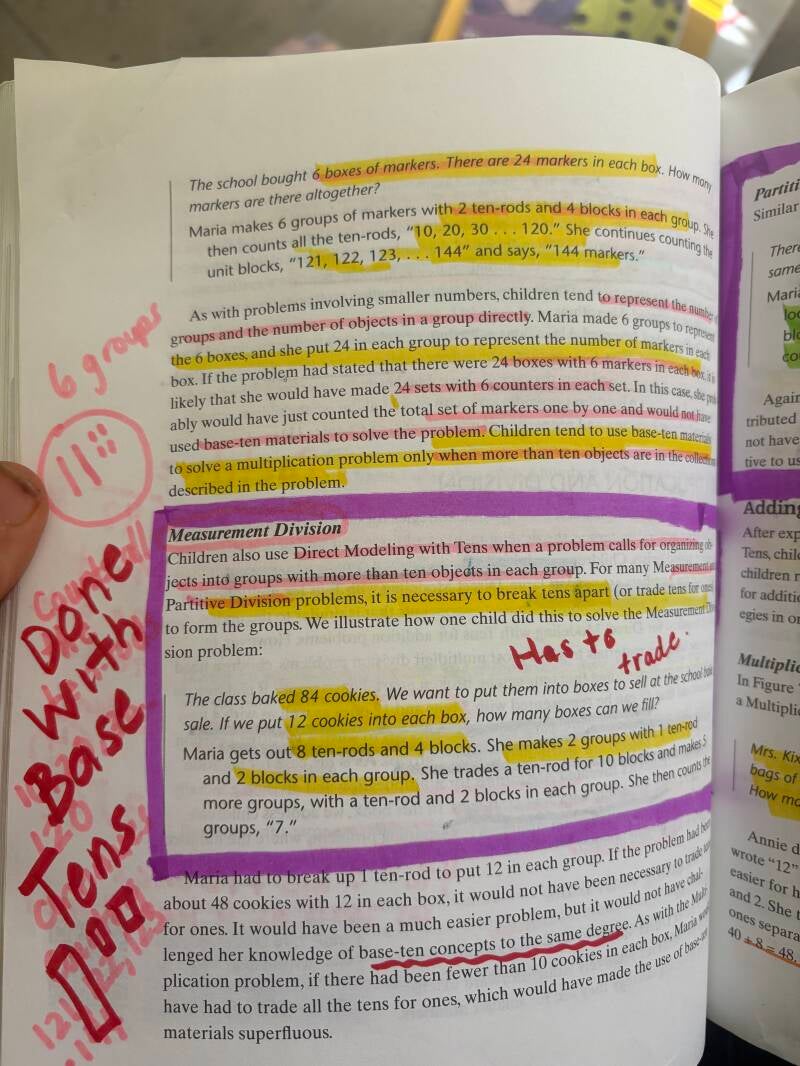 The school bought 6 boxes of markers. There are 24 markers in each box. How many
markers are there altogether?
Maria makes 6 groups of markers with 2 ten-rods and 4 blocks in each group. She
then counts all the ten-rods, "10, 20, 30 . . . 120." She continues counting the
unit blocks, "121, 122, 123, . . . 144" and says, "144 markers."
As with problems involving smaller numbers, children tend to represent the number
groups and the number of objects in a group directly. Maria made 6 groups to represent
the 6 boxes, and she put 24 in each group to represent the number of markers in each
box. If the problem had stated that there were 24 boxes with 6 markers in each box, it is
likely that she would have made 24 sets with 6 counters in each set. In this case, she
ably would have just counted the total set of markers one by one and would not have
used base-ten materials to solve the problem. Children tend to use base-ten materials
to solve a multiplication problem only when more than ten objects are in the
described in the problem.
6 groups
Measurement Division
Children also use Direct Modeling with Tens when a problem calls for organizing ob-
jects into groups with more than ten objects in each group. For many Measurement
Partitive Division problems, it is necessary to break tens apart (or trade tens for ones)
to form the groups. We illustrate how one child did this to solve the Measurement
sion problem:
Has to
trade.
The class baked 84 cookies. We want to put them into boxes to sell at the school
sale. If we put 12 cookies into each box, how many boxes can we fill?
Maria gets out 8 ten-rods and 4 blocks. She makes 2 groups with 1 ten-rod
and 2 blocks in each group. She trades a ten-rod for 10 blocks and makes 5
more groups, with a ten-rod and 2 blocks in each group. She then counts the
groups, "7."
Done
With
Base
Tens
Maria had to break up 1 ten-rod to put 12 in each group. If the problem had been
about 48 cookies with 12 in each box, it would not have been necessary to trade
for ones. It would have been a much easier problem, but it would not have chal-
lenged her knowledge of base-ten concepts to the same degree. As with the Multi-
plication problem, if there had been fewer than 10 cookies in each box, Maria would
have had to trade all the tens for ones, which would have made the use of base-ten
materials superfluous.
120
Partiti
Similar
There
same
Maria
Again
tributed
not have
tive to us
Adding
After exp
Tens, chil
children
for additi
egies in
Multiplic
In Figure
a Multipli
Mrs. Kix
bags of
How
Annie d
wrote "12"
easier for h
and 2. She
ones separa
40 + 8 = 48,